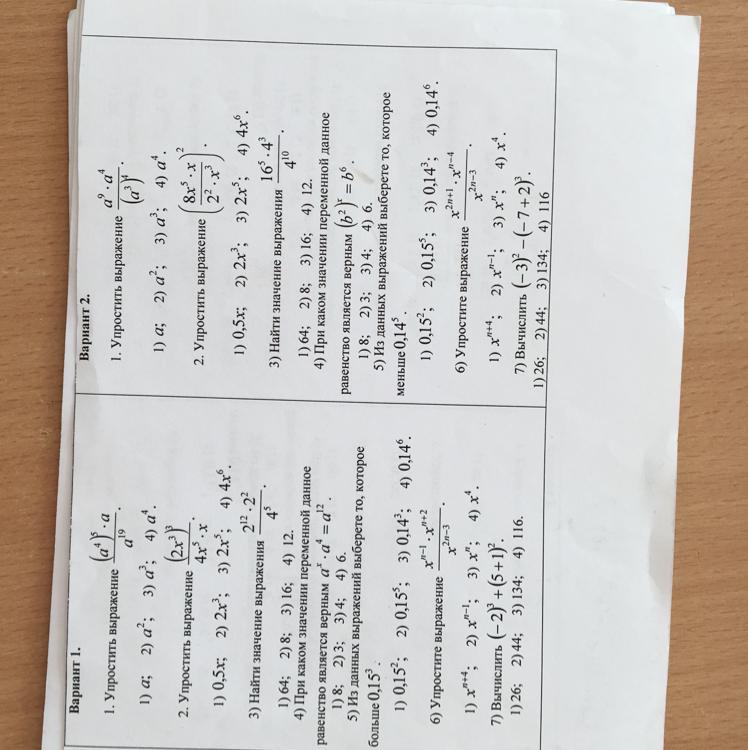 Вариант 1.
1. Упростить выражение (a⁴)⁵ · a / a¹⁹.
1) a; 2) a²; 3) a³; 4) a⁴.
2. Упростить выражение (2x³)³ / 4x⁵ · x.
1) 0,5x; 2) 2x³; 3) 2x⁵; 4) 4x⁶.
3) Найти значение выражения 2¹² · 2² / 4⁵.
1) 64; 2) 8; 3) 16; 4) 12.
4) При каком значении переменной данное
равенство является верным aˣ · a⁴ = a¹².
1) 8; 2) 3; 3) 4; 4) 6.
5) Из данных выражений выберете то, которое
больше 0,15³.
1) 0,15²; 2) 0,15⁵; 3) 0,14³; 4) 0,14⁶.
6) Упростите выражение xⁿ⁻¹ · xⁿ⁺² / x²ⁿ⁻³.
1) xⁿ⁺⁴; 2) xⁿ⁻¹; 3) xⁿ; 4) x⁴.
7) Вычислить (−2)³ + (5+1)².
1) 26; 2) 44; 3) 134; 4) 116.
Вариант 2.
1. Упростить выражение a⁹ · a⁴ / (a³)⁴.
1) a; 2) a²; 3) a³; 4) a⁴.
2. Упростить выражение (8x⁵ · x / 2² · x³)².
1) 0,5x; 2) 2x³; 3) 2x⁵; 4) 4x⁶.
3) Найти значение выражения 16⁵ · 4³ / 4¹⁰.
1) 64; 2) 8; 3) 16; 4) 12.
4) При каком значении переменной данное
равенство является верным (b²)ˣ = b⁶.
1) 8; 2) 3; 3) 4; 4) 6.
5) Из данных выражений выберете то, которое
меньше 0,14⁵.
1) 0,15²; 2) 0,15⁵; 3) 0,14³; 4) 0,14⁶.
6) Упростите выражение x²ⁿ⁺¹ · xⁿ⁻⁴ / x²ⁿ⁻³.
1) xⁿ⁺⁴; 2) xⁿ⁻¹; 3) xⁿ; 4) x⁴.
7) Вычислить (−3)² − (−7+2)³.
1) 26; 2) 44; 3) 134; 4) 116